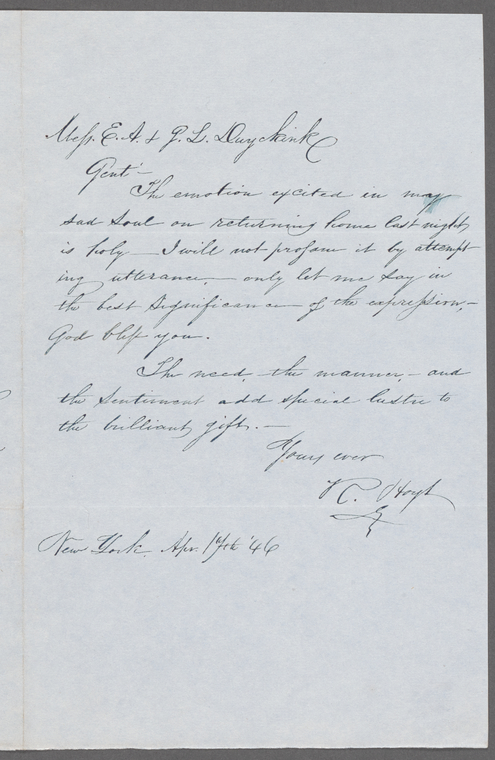 Mess. E. A. & G. L. Duyckink
Gent'-
The emotion excited in my
sad soul on returning home last night,
is holy - I will not profane it by attempt-
ing utterance, - only let me say in
the best significance of the expression, -
God bless you.
The need, - the manner, - and
the sentiment add special lustre to
the brilliant gift. -
Yours ever
C. Hoyt
New York, Apr. 17th '46